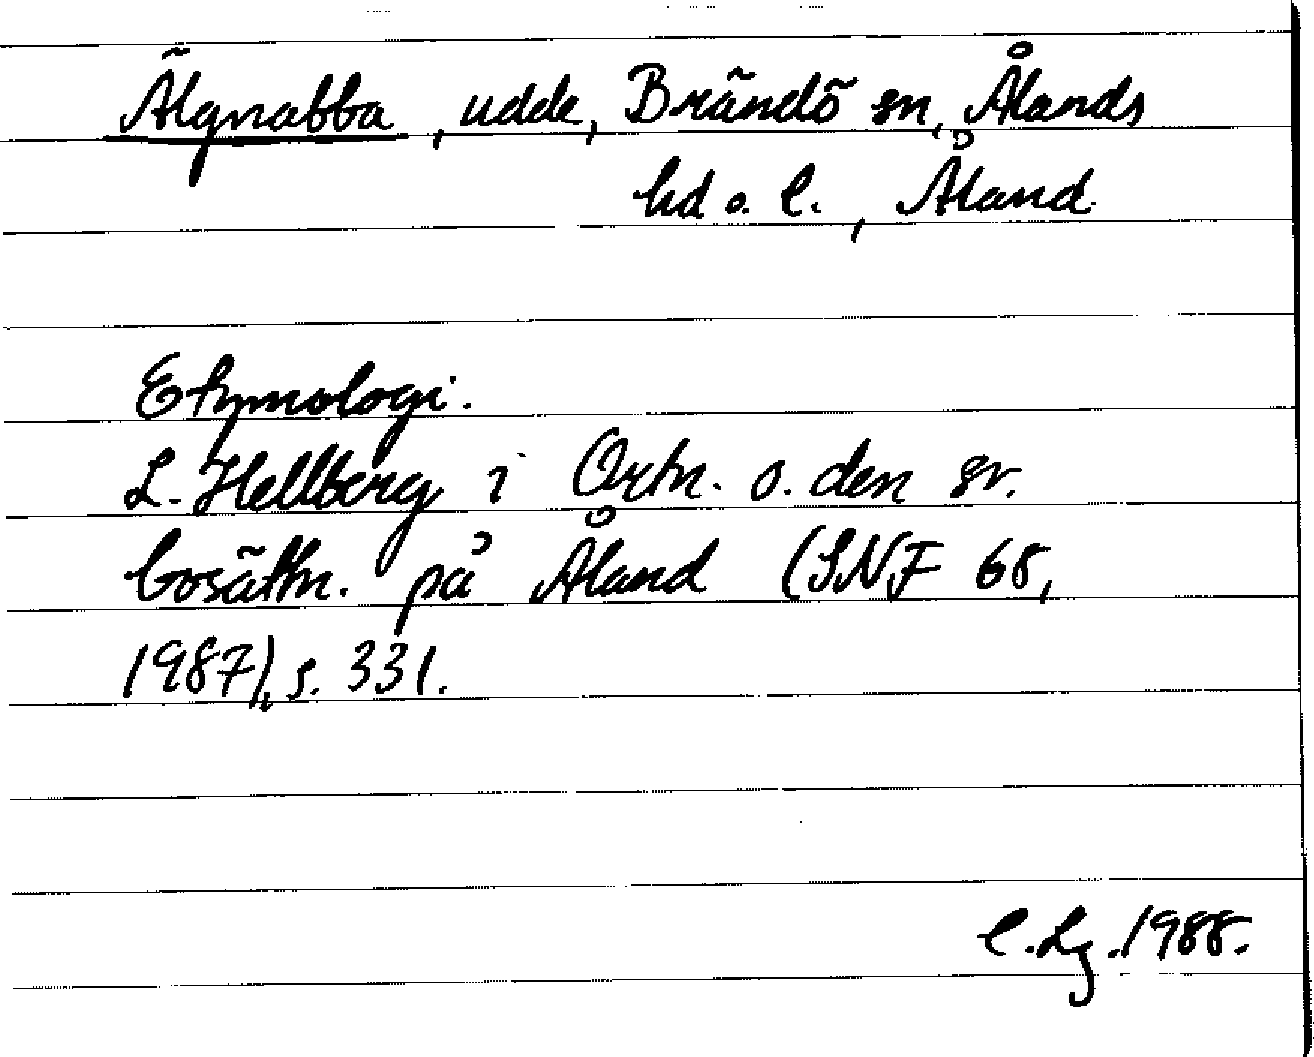 Älgnabba, udde, Brändö sn, Ålands
hd o. l., Åland
Etymologi.
L. Hellberg i Ortn. o. den sv.
bosättn. på Åland (SNF 68,
1987), s. 331.
C. Lg. 1988.